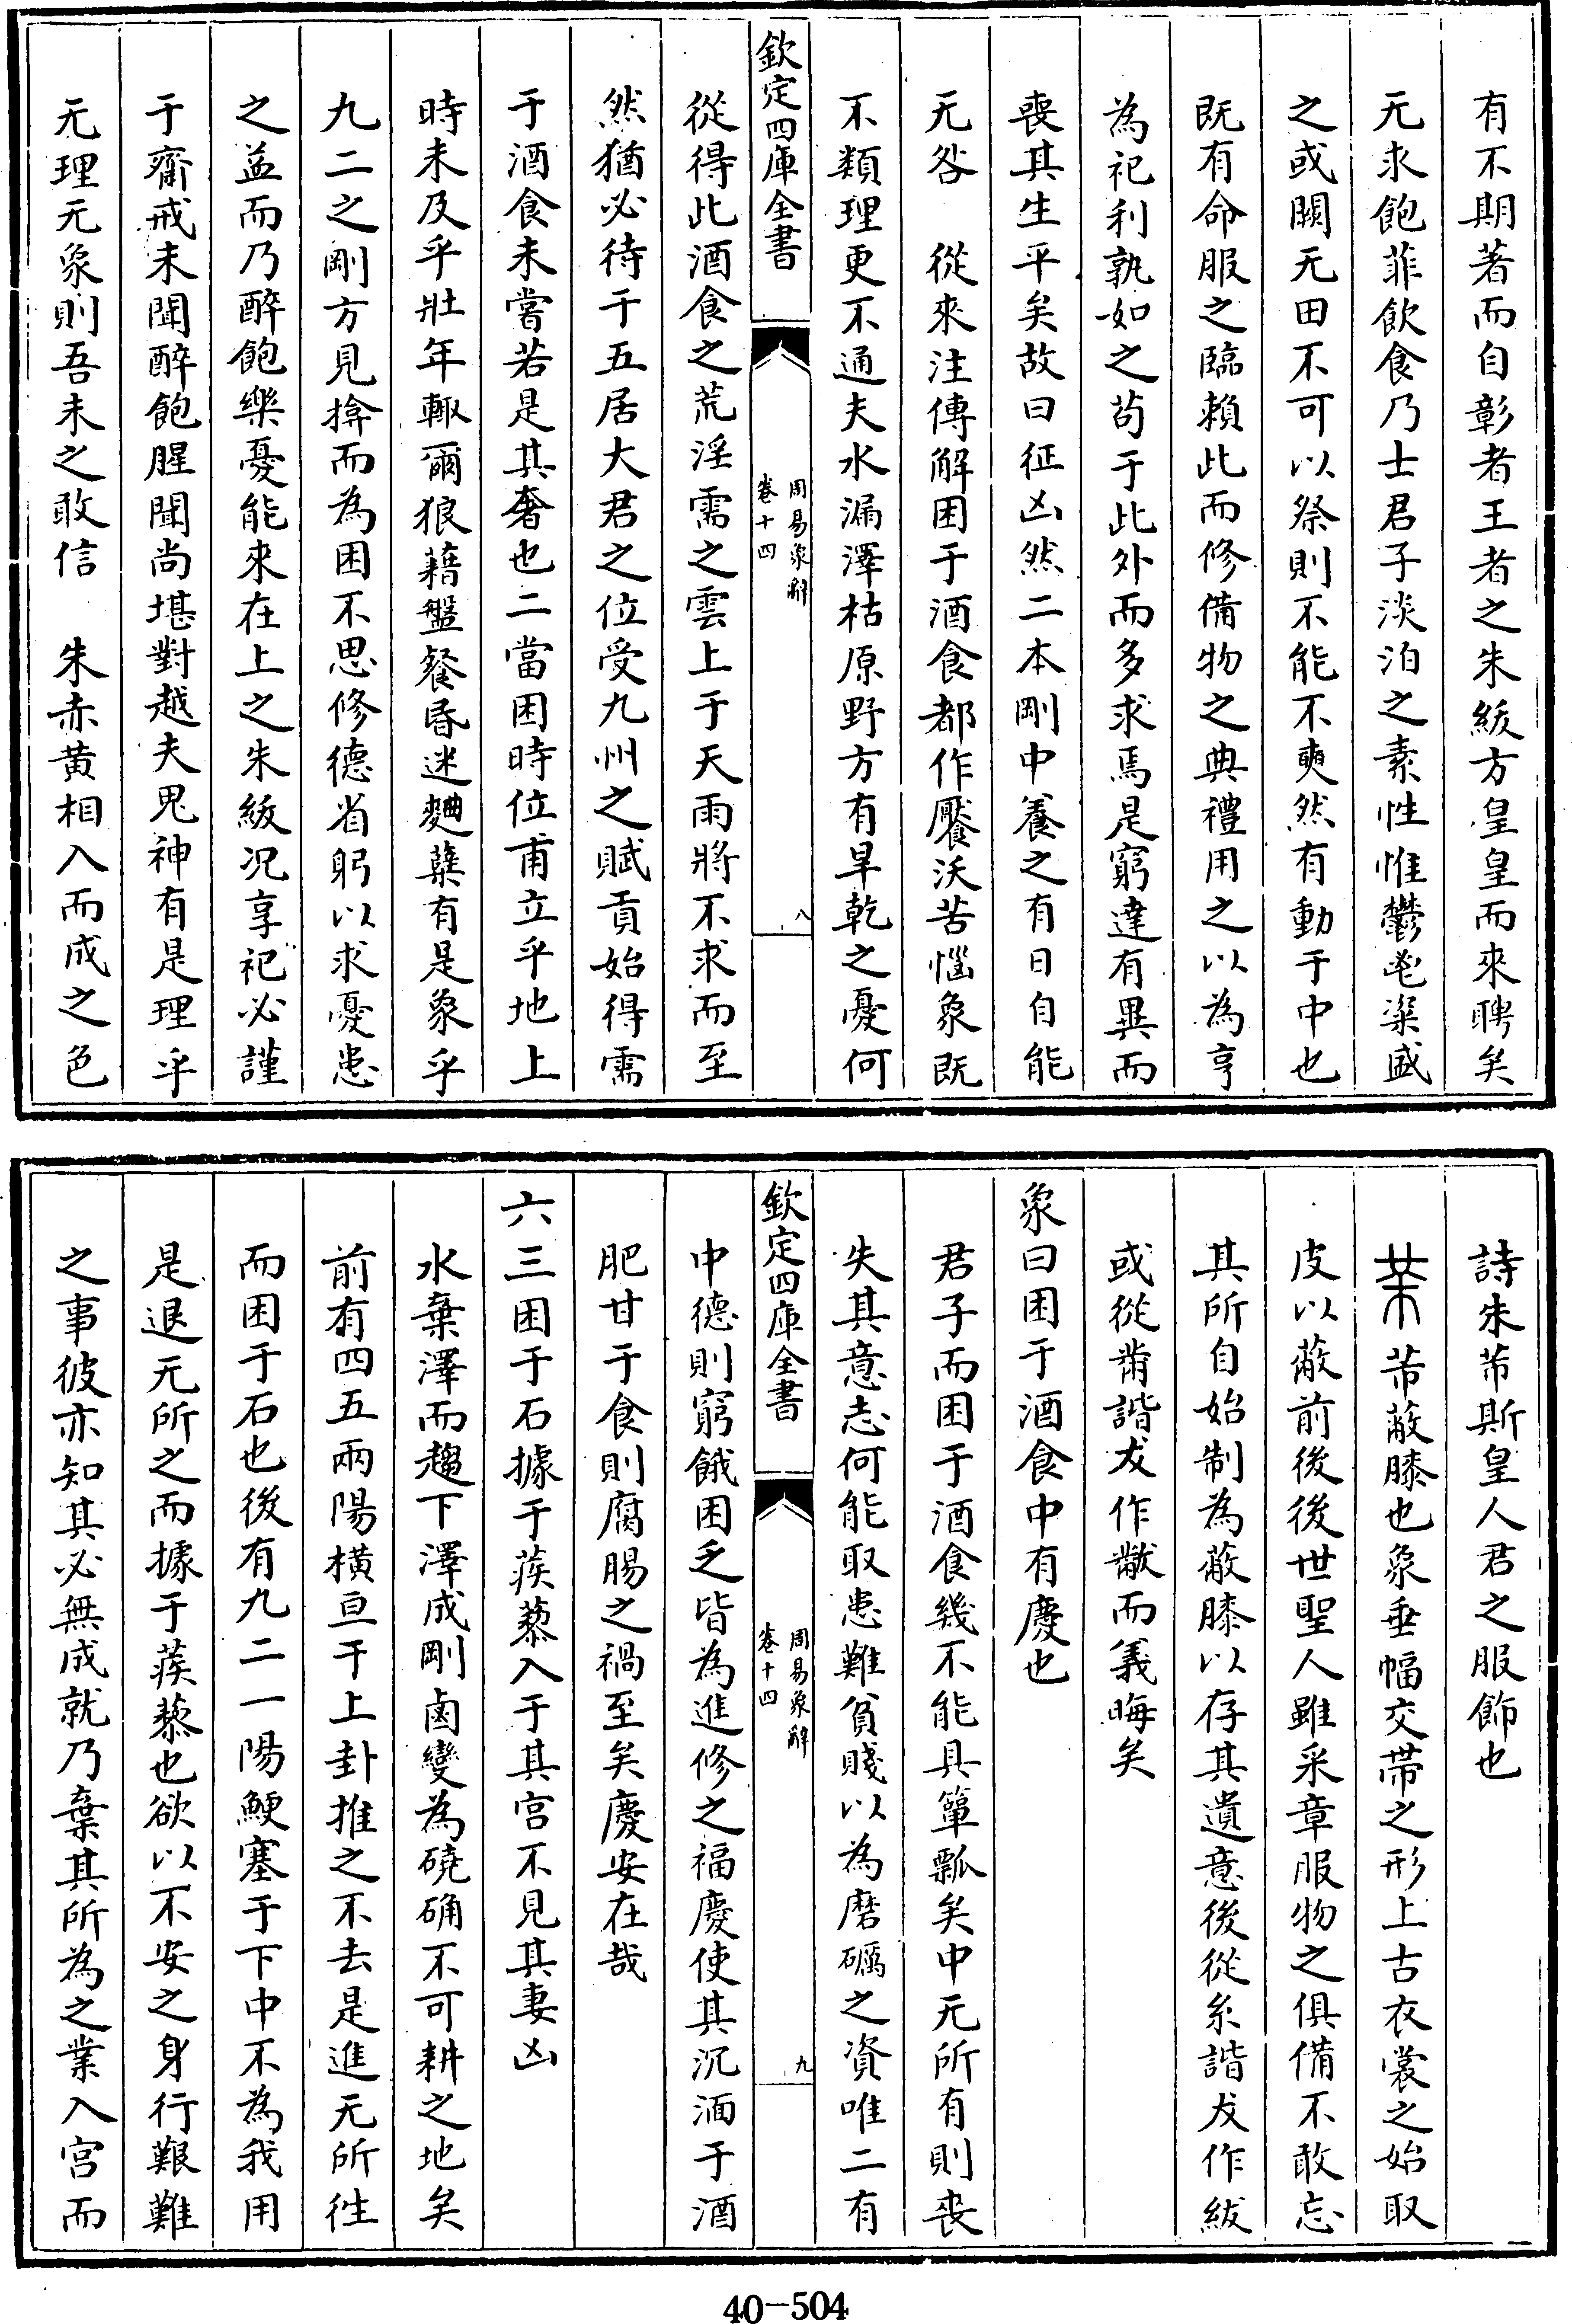 有不期著而自彰者王者之朱紱方皇皇而來聘矣
无求飽菲飲食乃士君子淡泊之素性惟鬱鬯粢盛
之或闕无田不可以祭則不能不奭然有動于中也
既有命服之臨賴此而修備物之典禮用之以為亨
為祀利孰如之茍于此外而多求焉是窮達有異而
喪其生平矣故曰征凶然二本剛中養之有日自能
无咎　從來注傳解困于酒食都作饜沃苦惱象既
不類理更不通夫水漏澤枯原野方有旱乾之憂何
欽定四庫全書　周易象辭　卷十四　八
從得此酒食之荒淫需之雲上于天雨將不求而至
然猶必待于五居大君之位受九州之賦貢始得需
于酒食未嘗若是其奢也二當困時位甫立乎地上
時未及乎壯年輙爾狼藉盤餐昏迷麯糵有是象乎
九二之剛方見揜而為困不思修德省躬以求憂患
之益而乃醉飽樂憂能來在上之朱紱况享祀必謹
于齋戒未聞醉飽腥聞尚堪對越夫鬼神有是理乎
无理无象則吾未之敢信　朱赤黄相入而成之色
詩朱芾斯皇人君之服飾也
芾蔽膝也象垂幅交帶之形上古衣裳之始取
皮以蔽前後後世聖人雖采章服物之俱備不敢忘
其所自始制為蔽膝以存其遺意後從糸諧犮作紱
或從黹諧犮作黻而義晦矣
象曰困于酒食中有慶也
君子而困于酒食幾不能具簞瓢矣中无所有則丧
失其意志何能取患難貧賤以為磨礪之資唯二有
欽定四庫全書　周易象辭　卷十四　九
中德則窮餓困乏皆為進修之福慶使其沉湎于酒
肥甘于食則腐腸之禍至矣慶安在哉
六三困于石據于蒺藜入于其宫不見其妻凶
水棄澤而趨下澤成剛鹵變為磽确不可耕之地矣
前有四五兩陽橫亘于上卦推之不去是進无所徃
而困于石也後有九二一陽鯁塞于下中不為我用
是退无所之而據于蒺藜也欲以不安之身行艱難
之事彼亦知其必無成就乃棄其所為之業入宫而
40-504